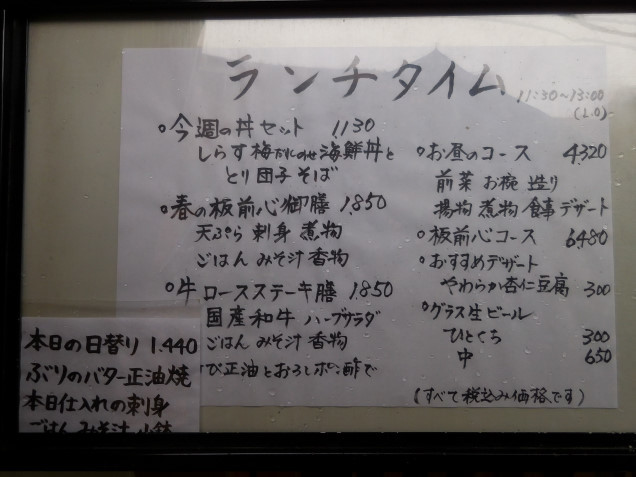 ランチタイム
11:30~13:00
(L.O)
○今週の丼セット 1130
しらす梅だれのせ海鮮丼と
とり団子そば
○春の板前心御膳 1,850
天ぷら 刺身 煮物
ごはん みそ汁 香物
○牛ロースステーキ膳 1,850
国産和牛 ハーブサラダ
ごはん みそ汁 香物
び正油とおろしポン酢で
○お昼のコース 4,320
前菜 お椀 造り
揚物 煮物 食事 デザート
○板前心コース 6,480
○おすすめデザート
やわらか杏仁豆腐 300
○グラス生ビール
ひとくち 300
中 650
(すべて税込み価格です)
本日の日替り 1,440
ぶりのバター正油焼
本日仕入れの刺身
ごはん みそ汁 小鉢